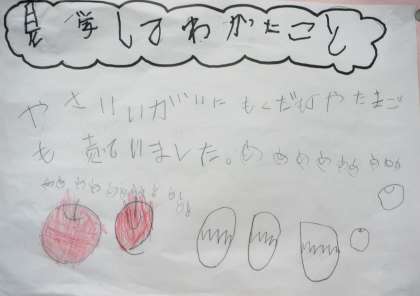 見学してわかったこと
やさいいがいにもくだものやたまご
も売ていました。